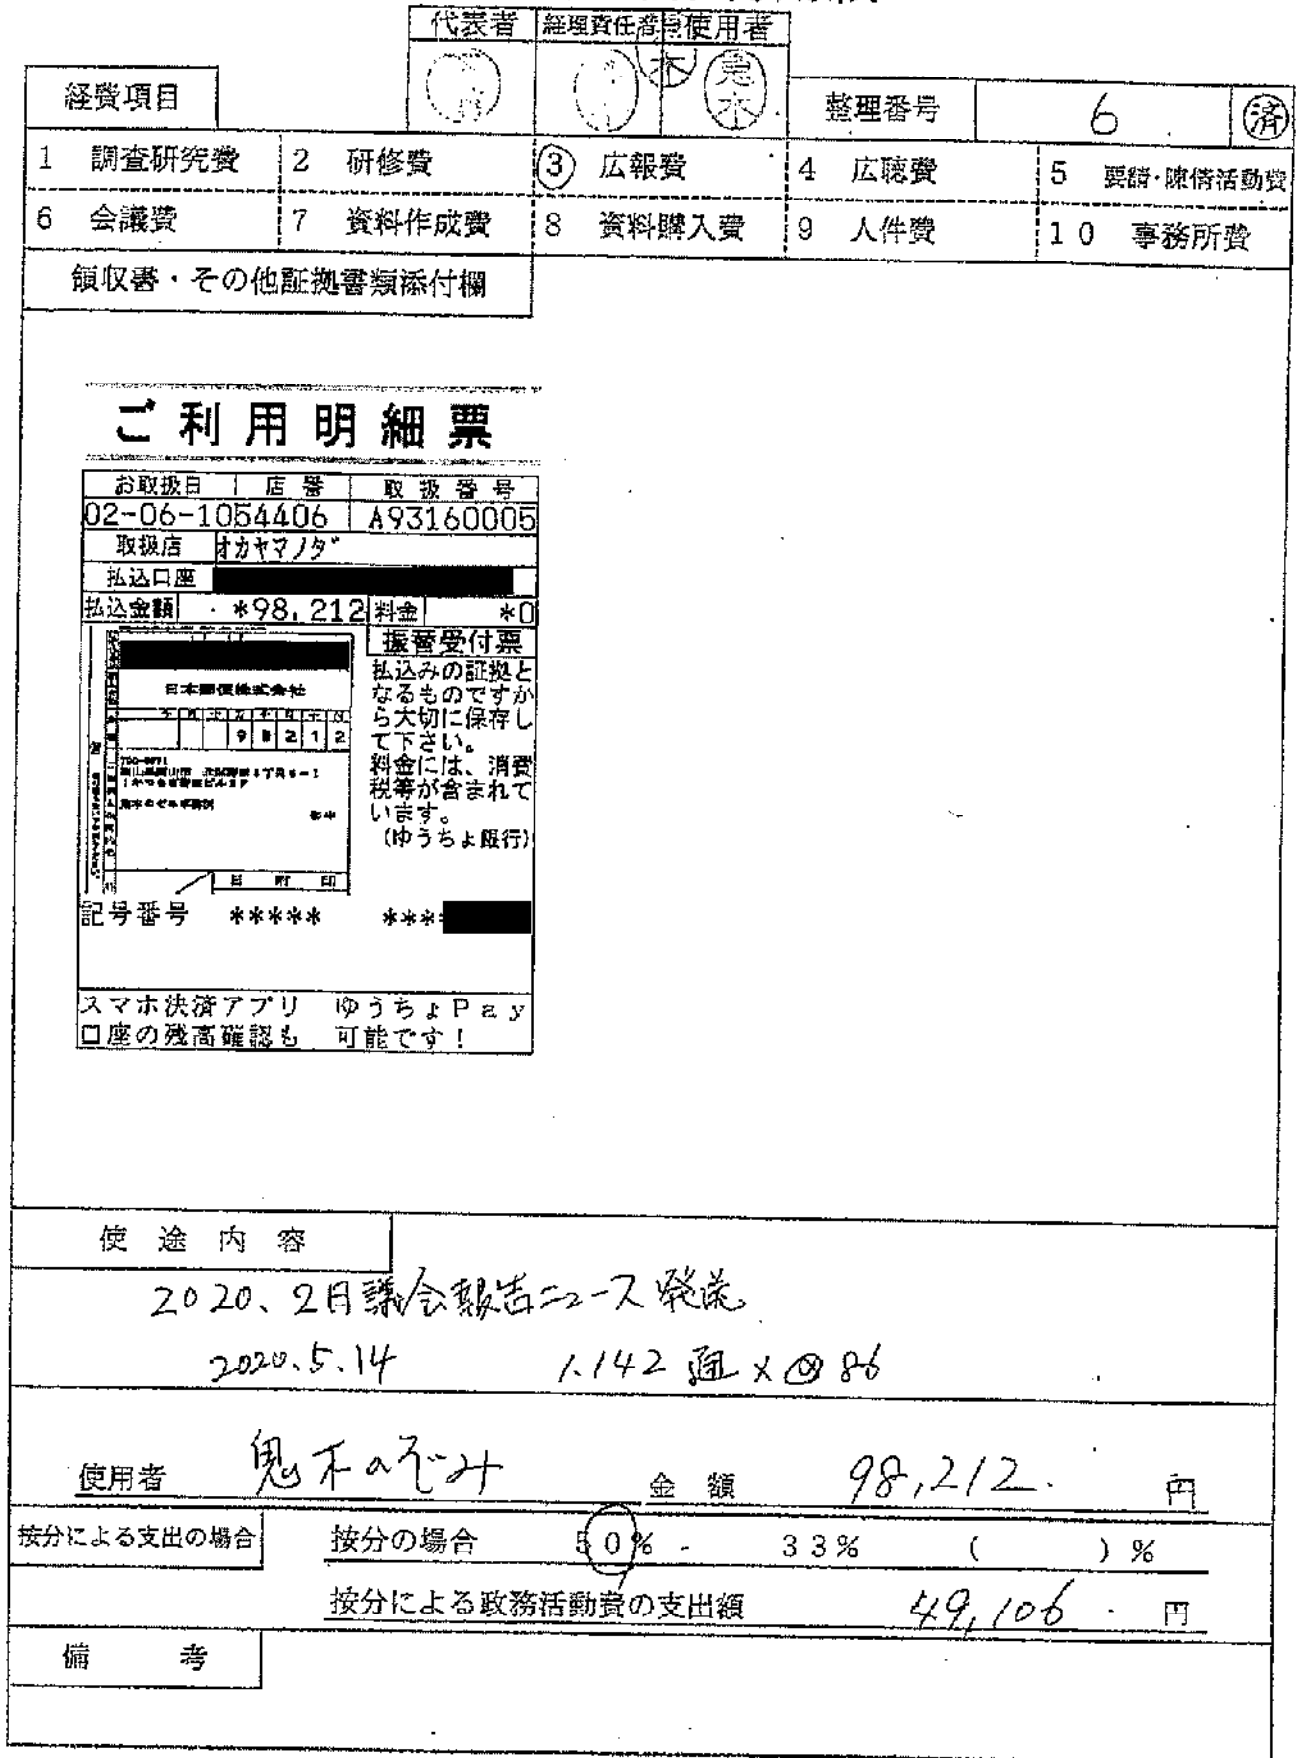 代表者 経理責任者 使用者
鬼木
経費項目
整理番号 6 済
1 調査研究費 2 研修費 3 広報費 4 広聴費 5 要請・陳情活動費
6 会議費 7 資料作成費 8 資料購入費 9 人件費 10 事務所費
領収書・その他証拠書類添付欄
ご利用明細票
お取扱日 店番 取扱番号
02-06-1054406 A93160005
取扱店 オカヤマノダ
払込口座
払込金額 *98,212 料金 *0
振替受付票
払込みの証拠と
なるものですか
ら大切に保存し
て下さい。
料金には、消費
税等が含まれて
います。
(ゆうちょ銀行)
日本郵便株式会社
98212
日附印
記号番号 ***** ***
スマホ決済アプリ ゆうちょPay
口座の残高確認も 可能です!
使途内容
2020、2月議会報告ニュース発送
2020.5.14 1.142通×@86
使用者 鬼木のぞみ 金額 98,212. 円
按分による支出の場合 按分の場合 50% 33% ( )%
按分による政務活動費の支出額 49,106 円
備考